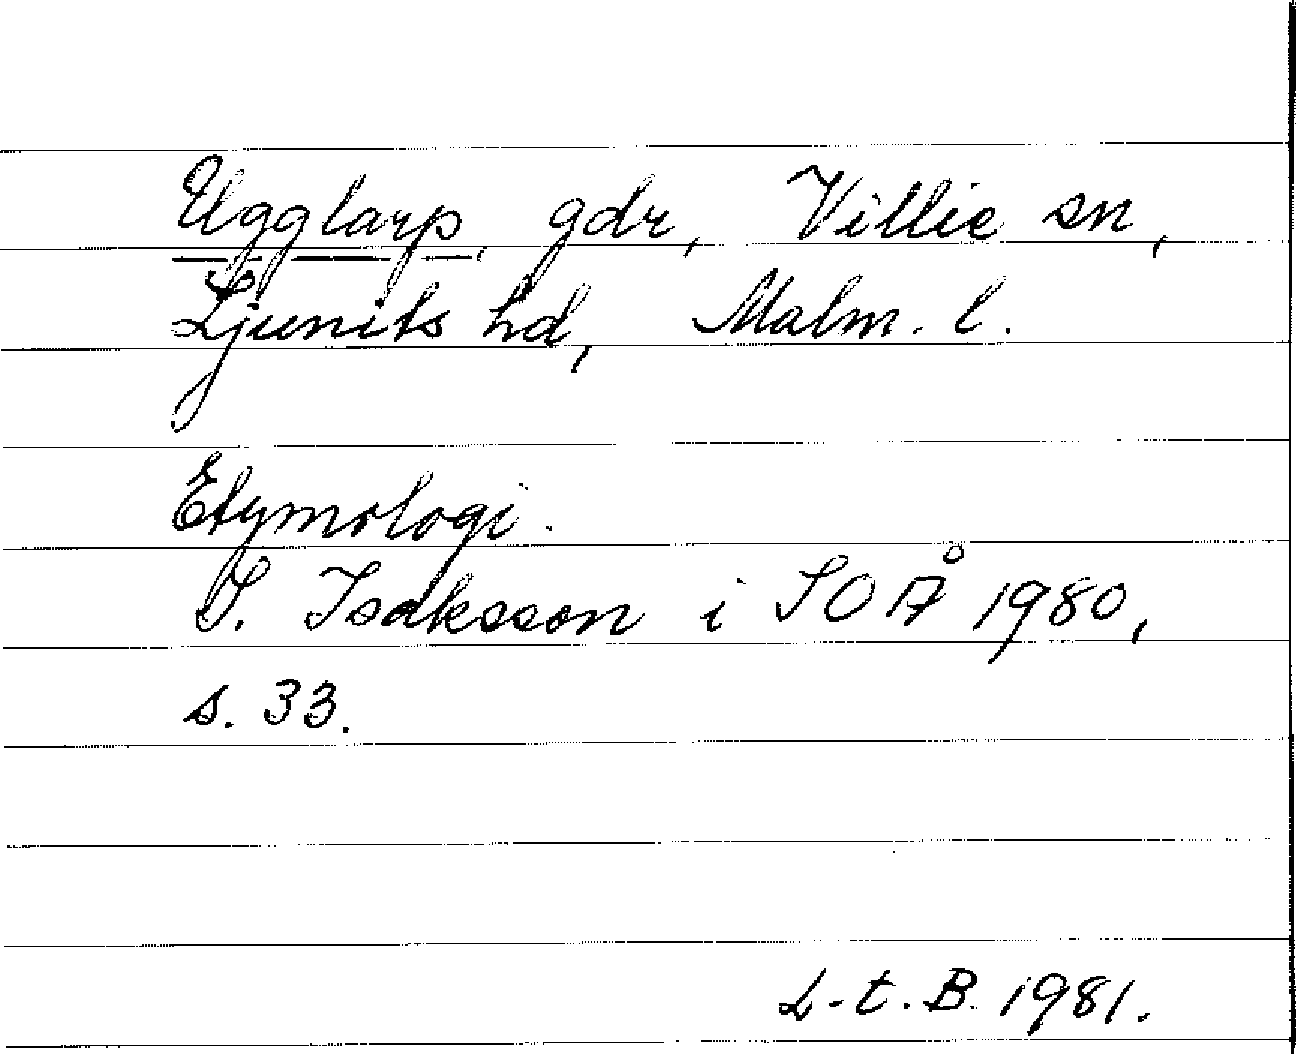 Ugglarp, gdr, Villie sn,
Ljunits hd, Malm. l.
Etymologi.
S. Isaksson i SOÅ 1980,
s. 33.
L-t. B. 1981.